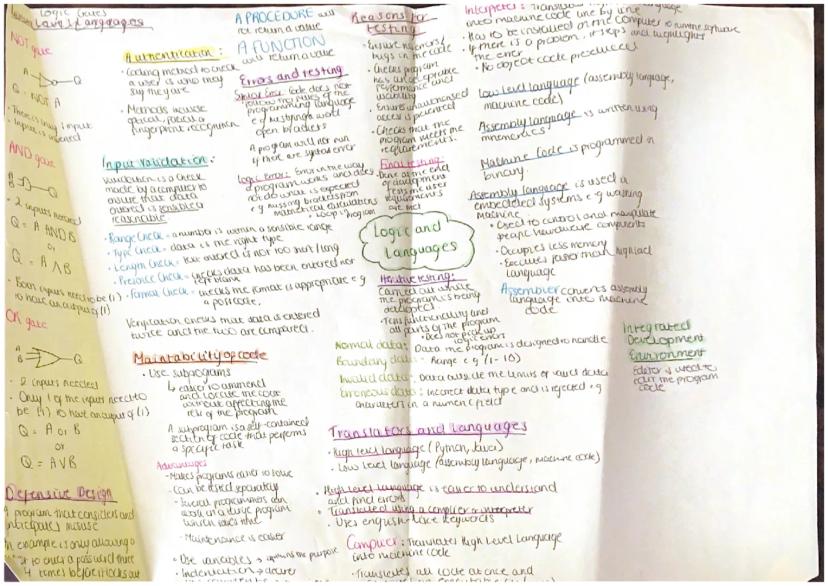 Logic Gates
Languages
NOT gate
A
Q
Q = NOT A
• There is only 1 input
• Input is inverted
AND gate
A
B
Q
• 2 inputs needed
Q = A AND B
or
Q = A ∧ B
• Both inputs need to be (1)
to have an output of (1)
OR gate
A
B
Q
• 2 inputs needed
• Only 1 of the inputs need to
be (1) to have an output of (1)
Q = A or B
or
Q = A ∨ B
Defensive Design
A program that considers and
anticipates misuse
example is only allowing a
to enter a password three
4 times before it locks out
Authentication:
• Coding method to check
a user is who they
say they are
• Methods include
facial
fingerprint recognition
Input validation:
Validation is a check
made by a computer to
ensure that data
entered is sensible &
reasonable
• Range Check - a number is within a sensible range
• Type Check - data is the right type
• Length Check - text entered is not too short/long
• Presence Check - checks data has been entered not
left blank
• Format Check - checks the format is appropriate e.g
a postcode,
Verification checks that data is entered
twice and the two are compared.
Maintability of code
• Use subprograms
↳ easier to ammend
and locate the code
without affecting the
rest of the program
A subprogram is a self-contained
section of code that performs
a specific task
Advantages
- Makes programs easier to
- Can be tested separately
- Several programmers can
work on a large program
which saves time
- Maintenance is easier
• Use variables → the purpose
• Indentation →
A PROCEDURE will
not return a value
A FUNCTION
will return a value
Errors and testing
Syntax Error: Code does not
follow the rules of the
programming language
e.g missing a word
open brackets
A program will not run
if there are syntax error
Logic Error: Error in the way
a program works and does
not do what is expected
e.g missing brackets from
mathematical calculations
• Loop in program
Reasons for
testing
• Ensure no errors/
bugs in the code
• Checks program
has an acceptable
performance and
usability
• Ensure unauthorised
access is prevented
• Checks that the
program meets the
requirements.
Final testing:
• Done at the end
of development
• Tests the user
requirements
are met
Logic and
Languages
Iterative testing:
Carried out while
the program is being
developed
• Tests functionality and
all parts of the program
• Does not pick up
logic errors
Normal data: Data the program is designed to handle
Boundary data: Range e.g (1-10)
Invalid data: Data outside the limits of valid data
Erroneous data: Incorrect data type and is rejected e.g
characters in a numeric field
Translators and Languages
• High level language (Python, Java)
• Low level language (assembly language, machine code)
• High level language is easier to understand
and find errors
• Translated using a complier or interpreter
• Uses english-like keywords
Compiler: Translates High level Language
into machine code
• Translates all code at once and
Interpreter: Translates
into machine code line by line
• Has to be installed on the computer to run the software
• If there is a problem, it stops and highlights
the error
• No object code produced
Low level language (assembly language,
machine code)
Assembly language is written using
mnemonics
Machine Code is programmed in
binary.
Assembly language is used in
embedded systems e.g washing
machine
• Used to control and manipulate
specific hardware components
• Occupies less memory
• Executes faster than high level
language
Assembler converts assembly
language into machine
code
Integrated
Development
Environment
Editor is used to
edit the program
code